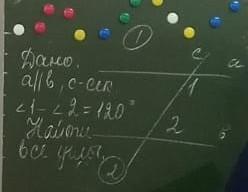 1
Дано:
a||b, c-сек.
∠1-∠2=120°
Найти
все углы.
c
a
1
2
b
2